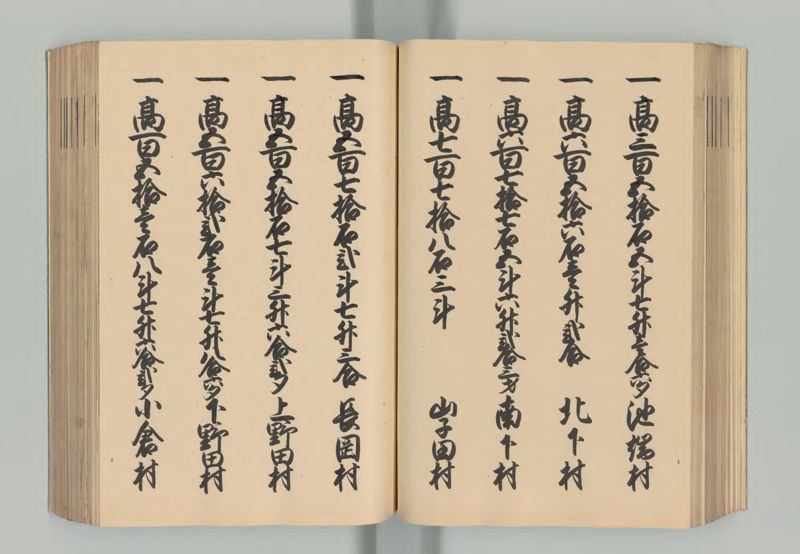 一 高三百五拾石五斗七升壱合六夕 池端村
一 高六百五拾六石壱升弐合 北下村
一 高六百七拾七石五斗六升弐合三夕 南下村
一 高七百七拾八石三斗 山子田村
一 高五百七拾石弐斗七升三合 長岡村
一 高五百五拾石七斗三升六合弐夕 上野田村
一 高五百六拾弐石壱斗七升八合六夕 下野田村
一 高百五拾壱石八斗七升六合弐夕 小倉村